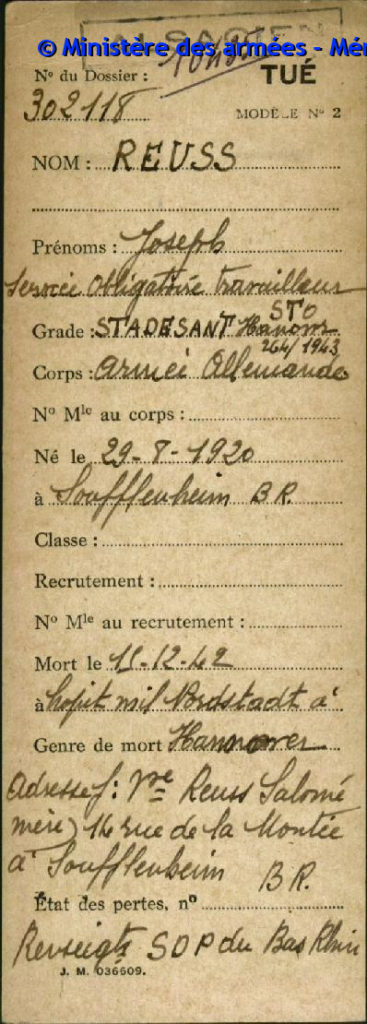 ALSACIEN
© Ministère des armées - Mé
N° du Dossier :
TUÉ
302118
MODÈLE N° 2
NOM : REUSS
Prénoms : Joseph
Service Obligatoire travailleur
STO
Grade : STADESANT Hanovr
264/1943
Corps : armée Allemande
N° Mle au corps :
Né le 29-8-1920
à Soufflenheim B R.
Classe :
Recrutement :
N° Mle au recrutement :
Mort le 15-12-42
à hopit mil Nordstadt à
Genre de mort Hannover
Adresse f : Vve Reuss Salomé
mère) 14 rue de la Montée
à Soufflenheim B R.
État des pertes, n°
Renseigts SDP du Bas Rhin
J. M. 036609.